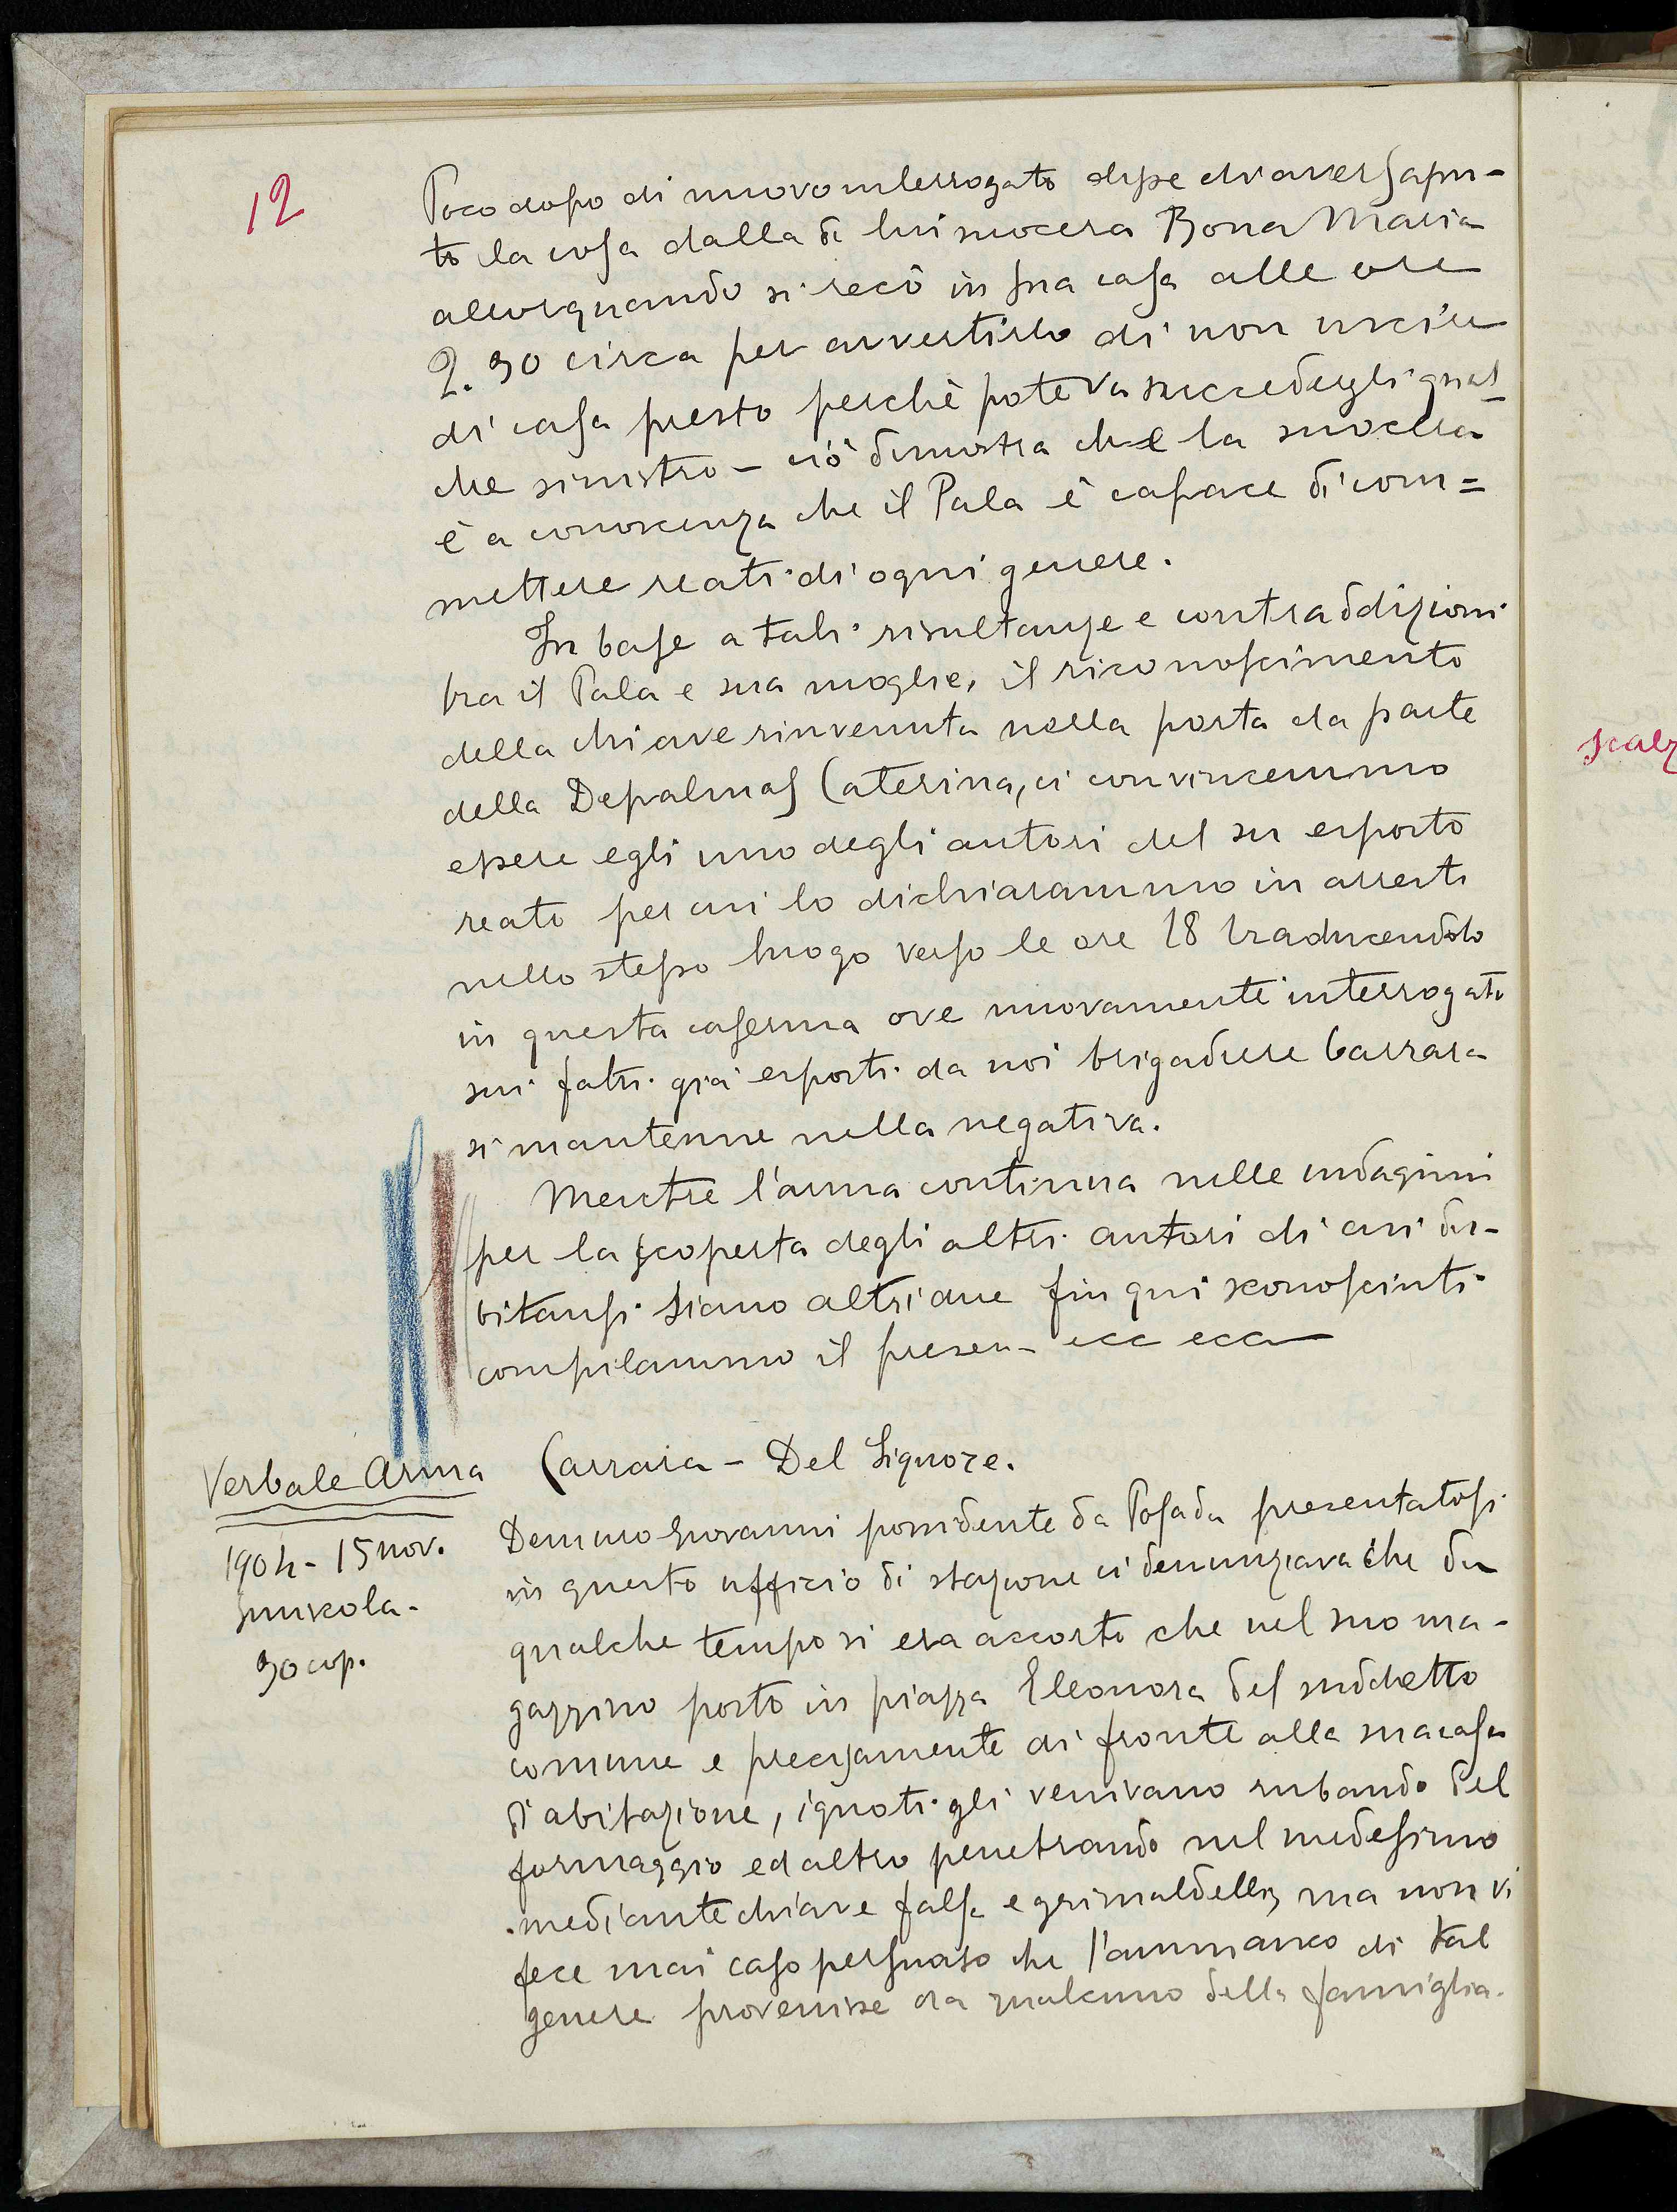 12
Poco dopo di nuovo interrogato disse di aver sapu-
to la cosa dalla di lui suocera Bona Maria
allorquando si recò in sua casa alle ore
2.30 circa per avvertirlo di non uscire
di casa presto perchè poteva succedergli qual
che sinistro - ciò dimostra che la suocera
è a conoscenza che il Pala è capace di com=
mettere reati di ogni genere.
In base a tali risultanze e contraddizioni
fra il Pala e sua moglie, il riconoscimento
della chiave rinvenuta nella porta da parte
della Depalmas Caterina, ci convincemmo
essere egli uno degli autori del su esposto
reato per cui lo dichiarammo in arresto
nello stesso luogo verso le ore 18 traducendolo
in questa caserma ove nuovamente interrogato
sui fatti già esposti da noi brigadiere Carrara
si mantenne nella negativa.
Mentre l'arma continua nelle indagini
per la scoperta degli altri autori di cui du-
bitansi siano altri due fin qui sconosciuti
compilammo il presen- ecc ecc
Carrara - Del Signore.
Verbale Arma
1904 - 15 nov.
30 cop.
Demuro Giovanni possidente da Posada presentatosi
in questo ufficio di stazione ci denunziava che da
qualche tempo si era accorto che nel suo ma-
gazzino posto in piazza Eleonora del suddetto
comune e precisamente di fronte alla sua casa
d'abitazione, ignoti gli venivano rubando del
formaggio ed altro penetrando nel medesimo
mediante chiave falsa e grimaldello, ma non vi
fece mai caso persuaso che l'ammanco di tal
genere provenisse da qualcuno della famiglia.
scalz